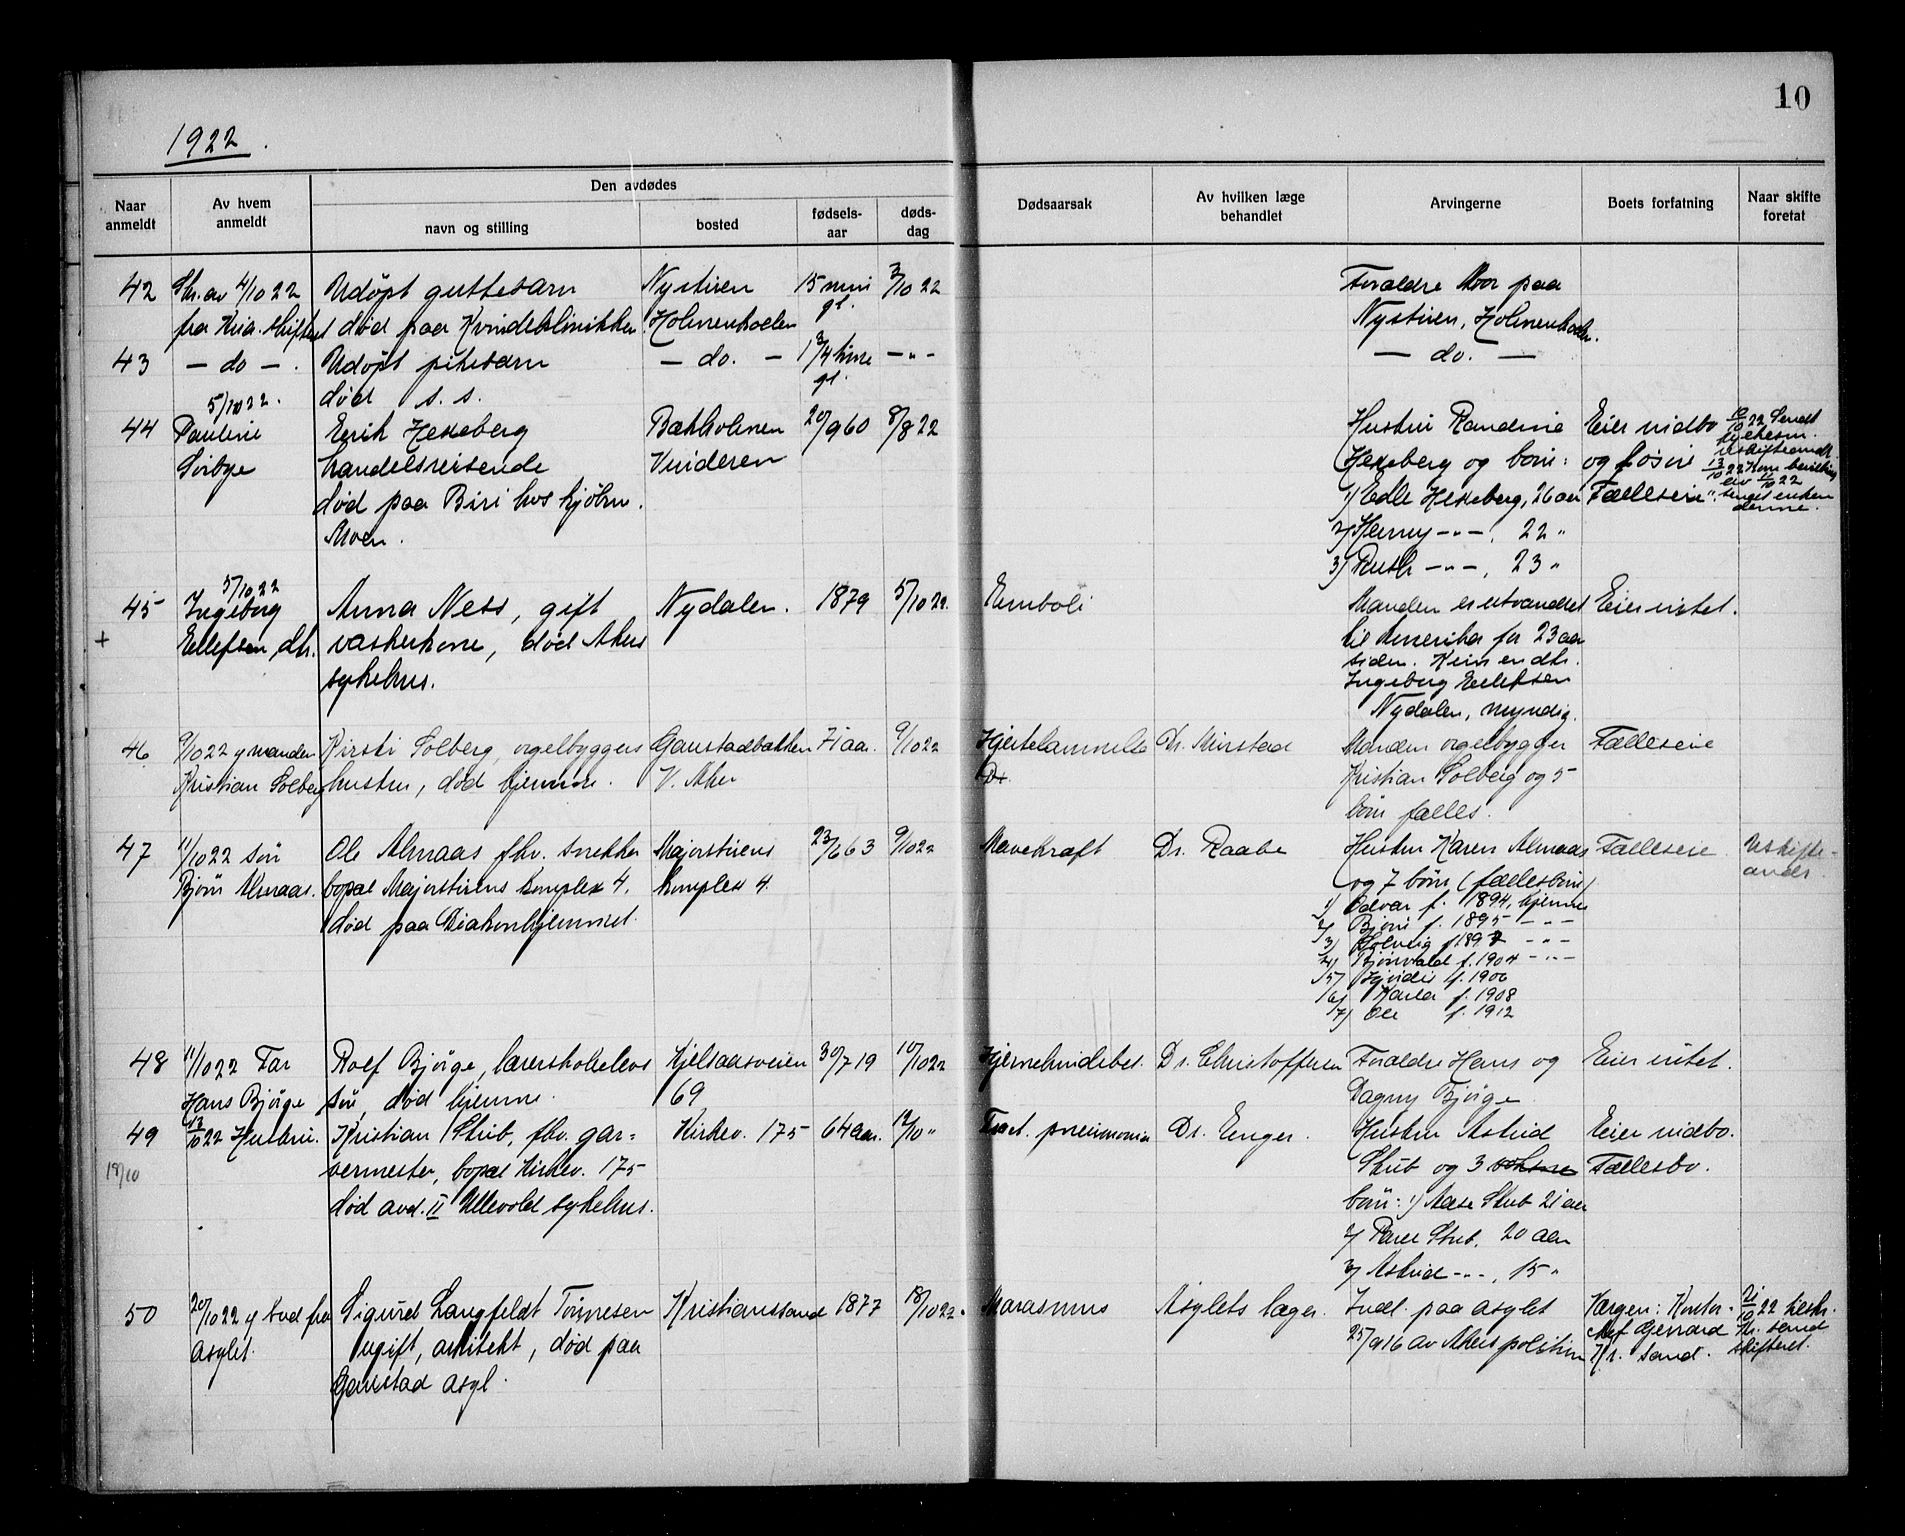 10
1922.
Den avdødes
Naar anmeldt
Av hvem anmeldt
navn og stilling
bosted
fødselsaar
dødsdag
Dødsaarsak
Av hvilken læge behandlet
Arvingerne
Boets forfatning
Naar skifte foretat
42 Skr. av 4/10 22 Udøpt guttebarn Nystuen 15 min 3/10 22 Forældre Moor paa
fra Kria. skifteret død paa Kvindeklinikken Holmenkollen gl. Nystuen, Holmenkollen.
43 — do — . Udøpt pikebarn — do. — 1 3/4 time — " — — do. —
5/10 22. død s. s. gl.
44 Pauline Erik Hexeberg Bakholmen 20/9 60 8/8 22 Hustru Randine Eier indbo 10/10 22 Sendt
Sørbye handelsreisende Vinderen Hexeberg og børn: og løsøre
død paa Biri hos kjøbm. 1) Edle Hexeberg, 26 aar Fælleseie
Moen. 2) Henny — " —, 22 "
3) Ruth — " —, 23 "
45 5/10 22 Ingeborg Anna Ness, gift Nydalen. 1879 5/10 22. Emboli Manden er utvandret Eier intet.
+ Ellefsen, dtr. vaskerkone, død Akers til Amerika for 23 aar
sykehus. siden. Kun en dtr.
Ingeborg Ellefsen
Nydalen, myndig.
46 9/10 22 v manden Kirsti Solberg, orgelbyggers Gaustadbakken 71 aar. 9/10 22 Hjertelammelse Dr. Mirstad Manden orgelbygger Fælleseie
Kristian Solberg hustru, død hjemme. V. Aker Dr. Kristian Solberg og 5
børn fælles.
47 11/10 22 søn Ole Almaas fhv. snekker Majorstuens 23/6 63 9/10 22 Mavekræft Dr. Raabe Hustru Karen Almaas Fælleseie Uskifte-
Bjørn Almaas. bopæl Majorstuens komplex 4. komplex 4. og 7 børn (fællesbørn)
død paa Diakonhjemmet. 1) Odvar f. 1894, hjemme
2) Bjørn f. 1895 — " —
3) Solveig f. 1897 — " —
4) Bjønvald f. 1904 — " —
5) Hjørdis f. 1906
6) Karla f. 1908
7) Ole f. 1912
48 11/10 22 Far Rolf Bjørge, lærerskoleelevs Kjelsaasveien 30/7 19 10/10 22 Hjernehindebet. Dr. Christoffersen Forældre Hans og Eier intet.
Hans Bjørge søn, død hjemme. 69 Dagny Bjørge
49 13/10 22 Hustru. Kristian Stub, fhv. gar= Kirkev. 175 64 aar. 12/10 " pneumonia Dr. Enger. Hustru Astrid Eier indbo.
18/10 vermester, bopæl Kirkev. 175 Stub og 3 voksne Fællesbo.
død avd. II Ullevold sykehus. børn: 1) Aase Stub 21 aar
2) Stub, 20 aar
3) Astrid — " —, 15 "
50 20/10 22 v bud fra Sigurd Langfeldt Tønnesen Kristianssand 1877 18/10 22. Marasmus Asylets læger. Indl. paa asylet Værgen: Kontor- 21/10 22 beskr.
asylet. ugift, arkitekt, død paa 25/9 16 av Akers politi Kr. sand
Gaustad asyl. Kr. sand. skifteret.